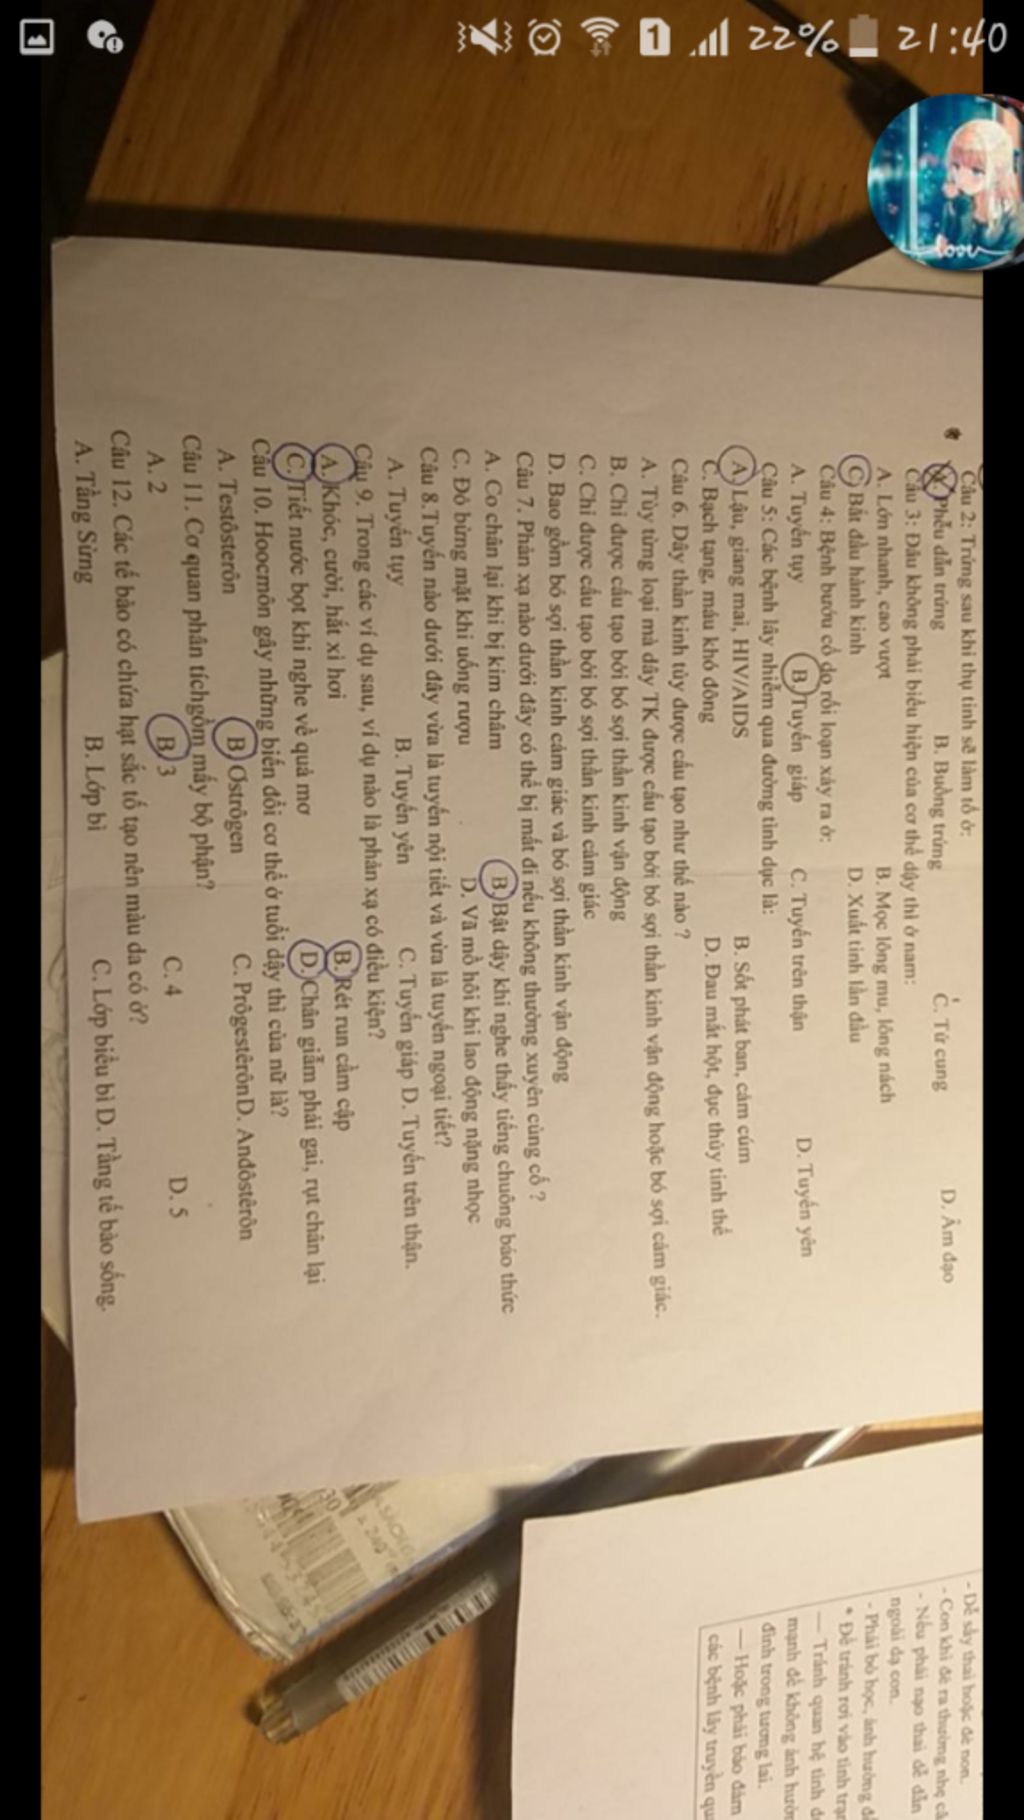 22% 21:40
1
love
Câu 2: Trứng sau khi thụ tinh sẽ làm tổ ở:
A. Phễu dẫn trứng B. Buồng trứng C. Tử cung D. Âm đạo
Câu 3: Đâu không phải biểu hiện của cơ thể dậy thì ở nam:
A. Lớn nhanh, cao vượt B. Mọc lông mu, lông nách
C. Bắt đầu hành kinh D. Xuất tinh lần đầu
Câu 4: Bệnh bướu cổ do rối loạn xảy ra ở:
A. Tuyến tụy B. Tuyến giáp C. Tuyến trên thận D. Tuyến yên
Câu 5: Các bệnh lây nhiễm qua đường tình dục là:
A. Lậu, giang mai, HIV/AIDS B. Sốt phát ban, cảm cúm
C. Bạch tạng, máu khó đông D. Đau mắt hột, đục thủy tinh thể
Câu 6. Dây thần kinh tủy được cấu tạo như thế nào ?
A. Tùy từng loại mà dây TK được cấu tạo bởi bó sợi thần kinh vận động hoặc bó sợi cảm giác.
B. Chỉ được cấu tạo bởi bó sợi thần kinh vận động
C. Chỉ được cấu tạo bởi bó sợi thần kinh cảm giác
D. Bao gồm bó sợi thần kinh cảm giác và bó sợi thần kinh vận động
Câu 7. Phản xạ nào dưới đây có thể bị mất đi nếu không thường xuyên củng cố ?
A. Co chân lại khi bị kim châm B. Bật dậy khi nghe thấy tiếng chuông báo thức
C. Đỏ bừng mặt khi uống rượu D. Vã mồ hôi khi lao động nặng nhọc
Câu 8.Tuyến nào dưới đây vừa là tuyến nội tiết và vừa là tuyến ngoại tiết?
A. Tuyến tụy B. Tuyến yên C. Tuyến giáp D. Tuyến trên thận.
Câu 9. Trong các ví dụ sau, ví dụ nào là phản xạ có điều kiện?
A. Khóc, cười, hắt xì hơi B. Rét run cầm cập
C. Tiết nước bọt khi nghe về quả mơ D. Chân giẫm phải gai, rụt chân lại
Câu 10. Hoocmôn gây những biến đổi cơ thể ở tuổi dậy thì của nữ là?
A. Testôsterôn B. Ơstrôgen C. PrôgestêrônD. Anđôstêrôn
Câu 11. Cơ quan phân tíchgồm mấy bộ phận?
A. 2 B. 3 C. 4 D. 5
Câu 12. Các tế bào có chứa hạt sắc tố tạo nên màu da có ở?
A. Tầng Sừng B. Lớp bì C. Lớp biểu bì D. Tầng tế bào sống.
- Dễ sảy thai hoặc đẻ non.
- Con khi đẻ ra thường nhẹ
- Nếu phải nạo thai dễ dẫn
ngoài dạ con.
- Phải bỏ học, ảnh hưởng
* Để tránh rơi vào tình
— Tránh quan hệ tình
mạnh để không ảnh
đình trong tương lai.
— Hoặc phải bảo đảm
các bệnh lây truyền